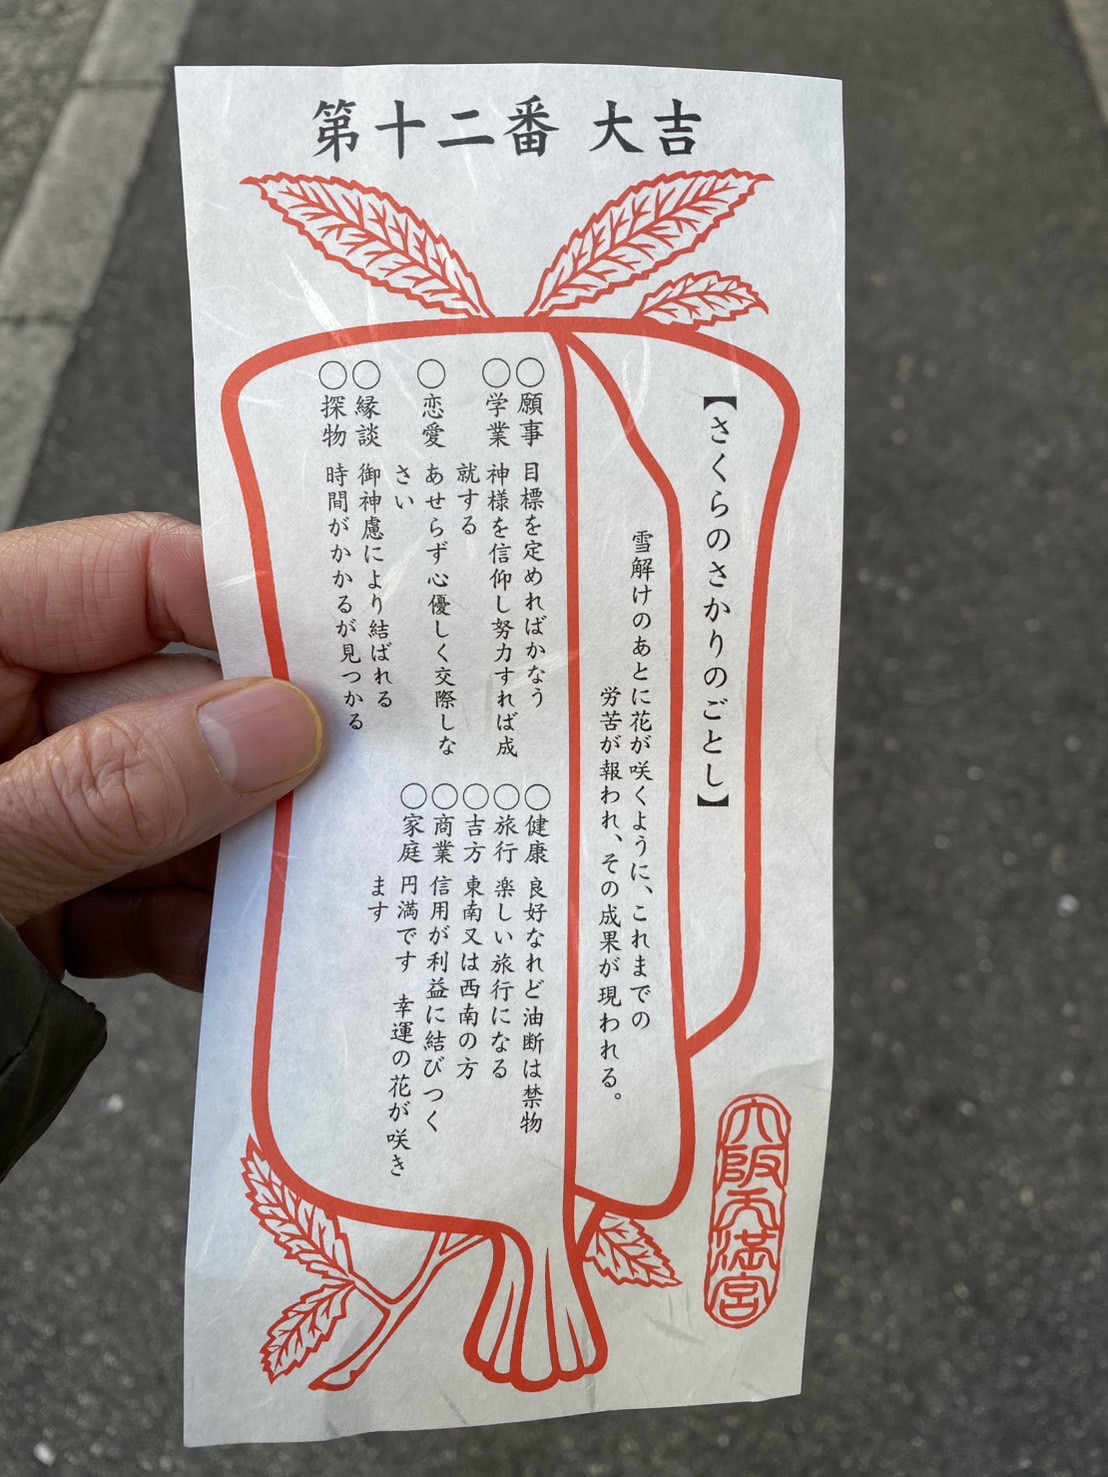 第十二番 大吉
【さくらのさかりのごとし】
雪解けのあとに花が咲くように、これまでの
労苦が報われ、その成果が現われる。
○願事 目標を定めればかなう
○学業 神様を信仰し努力すれば成
就する
○恋愛 あせらず心優しく交際しな
さい
○縁談 御神慮により結ばれる
○探物 時間がかかるが見つかる
○健康 良好なれど油断は禁物
○旅行 楽しい旅行になる
○吉方 東南又は西南の方
○商業 信用が利益に結びつく
○家庭 円満です 幸運の花が咲き
ます
大阪天満宮